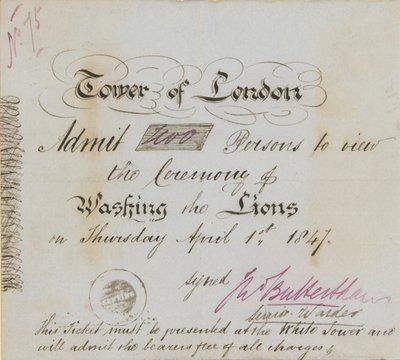 No. 75
Tower of London
Admit two Persons to view
the Ceremony of
Washing the Lions
on Thursday April 1st. 1847.
signed
Senior Warder
This Ticket must be presented at the White Tower and
will admit the bearers free of all charges.